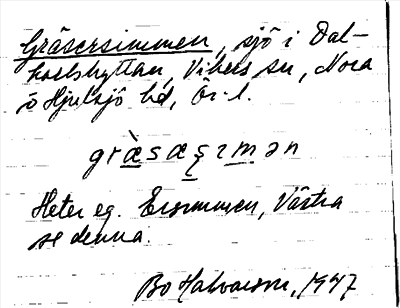 Gräsersimmen, sjö i Dal-
karlshyttan, Vikers sn, Nora
o Hjulsjö hd, Ör. l.
græ̀sæʂımən
Heter eg. Ersimmen, Västra
se denna.
Bo Halvarson, 1947